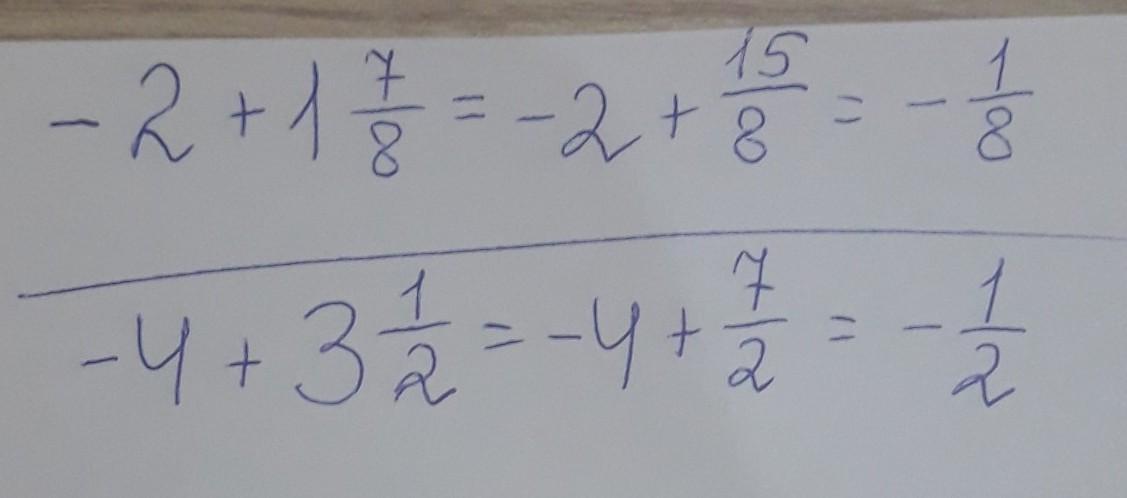 -2 + 1 7/8 = -2 + 15/8 = - 1/8
-4 + 3 1/2 = -4 + 7/2 = - 1/2